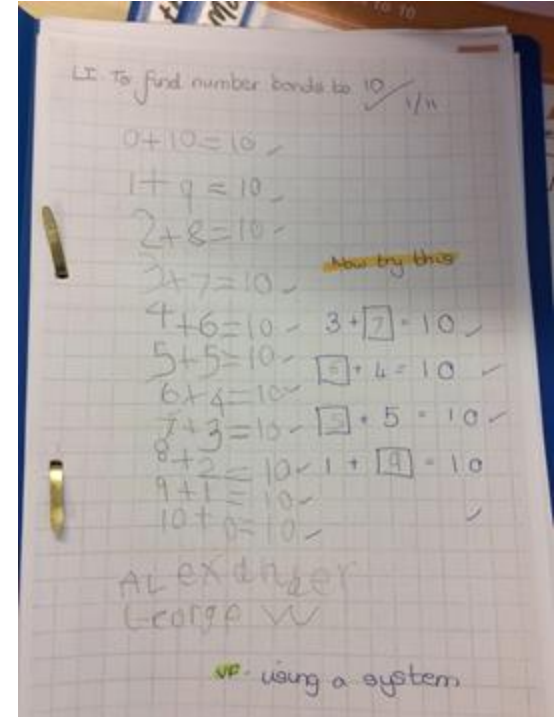 to 10
LI. To find number bonds to 10
1/11
0+10=10
1+9=10
2+8=10
3+7=10
4+6=10
5+5=10
6+4=10
7+3=10
8+2=10
9+1=10
10+0=10
Now try this
3+7=10
6+4=10
5+5=10
1+9=10
ALexander
George W
VF- using a system